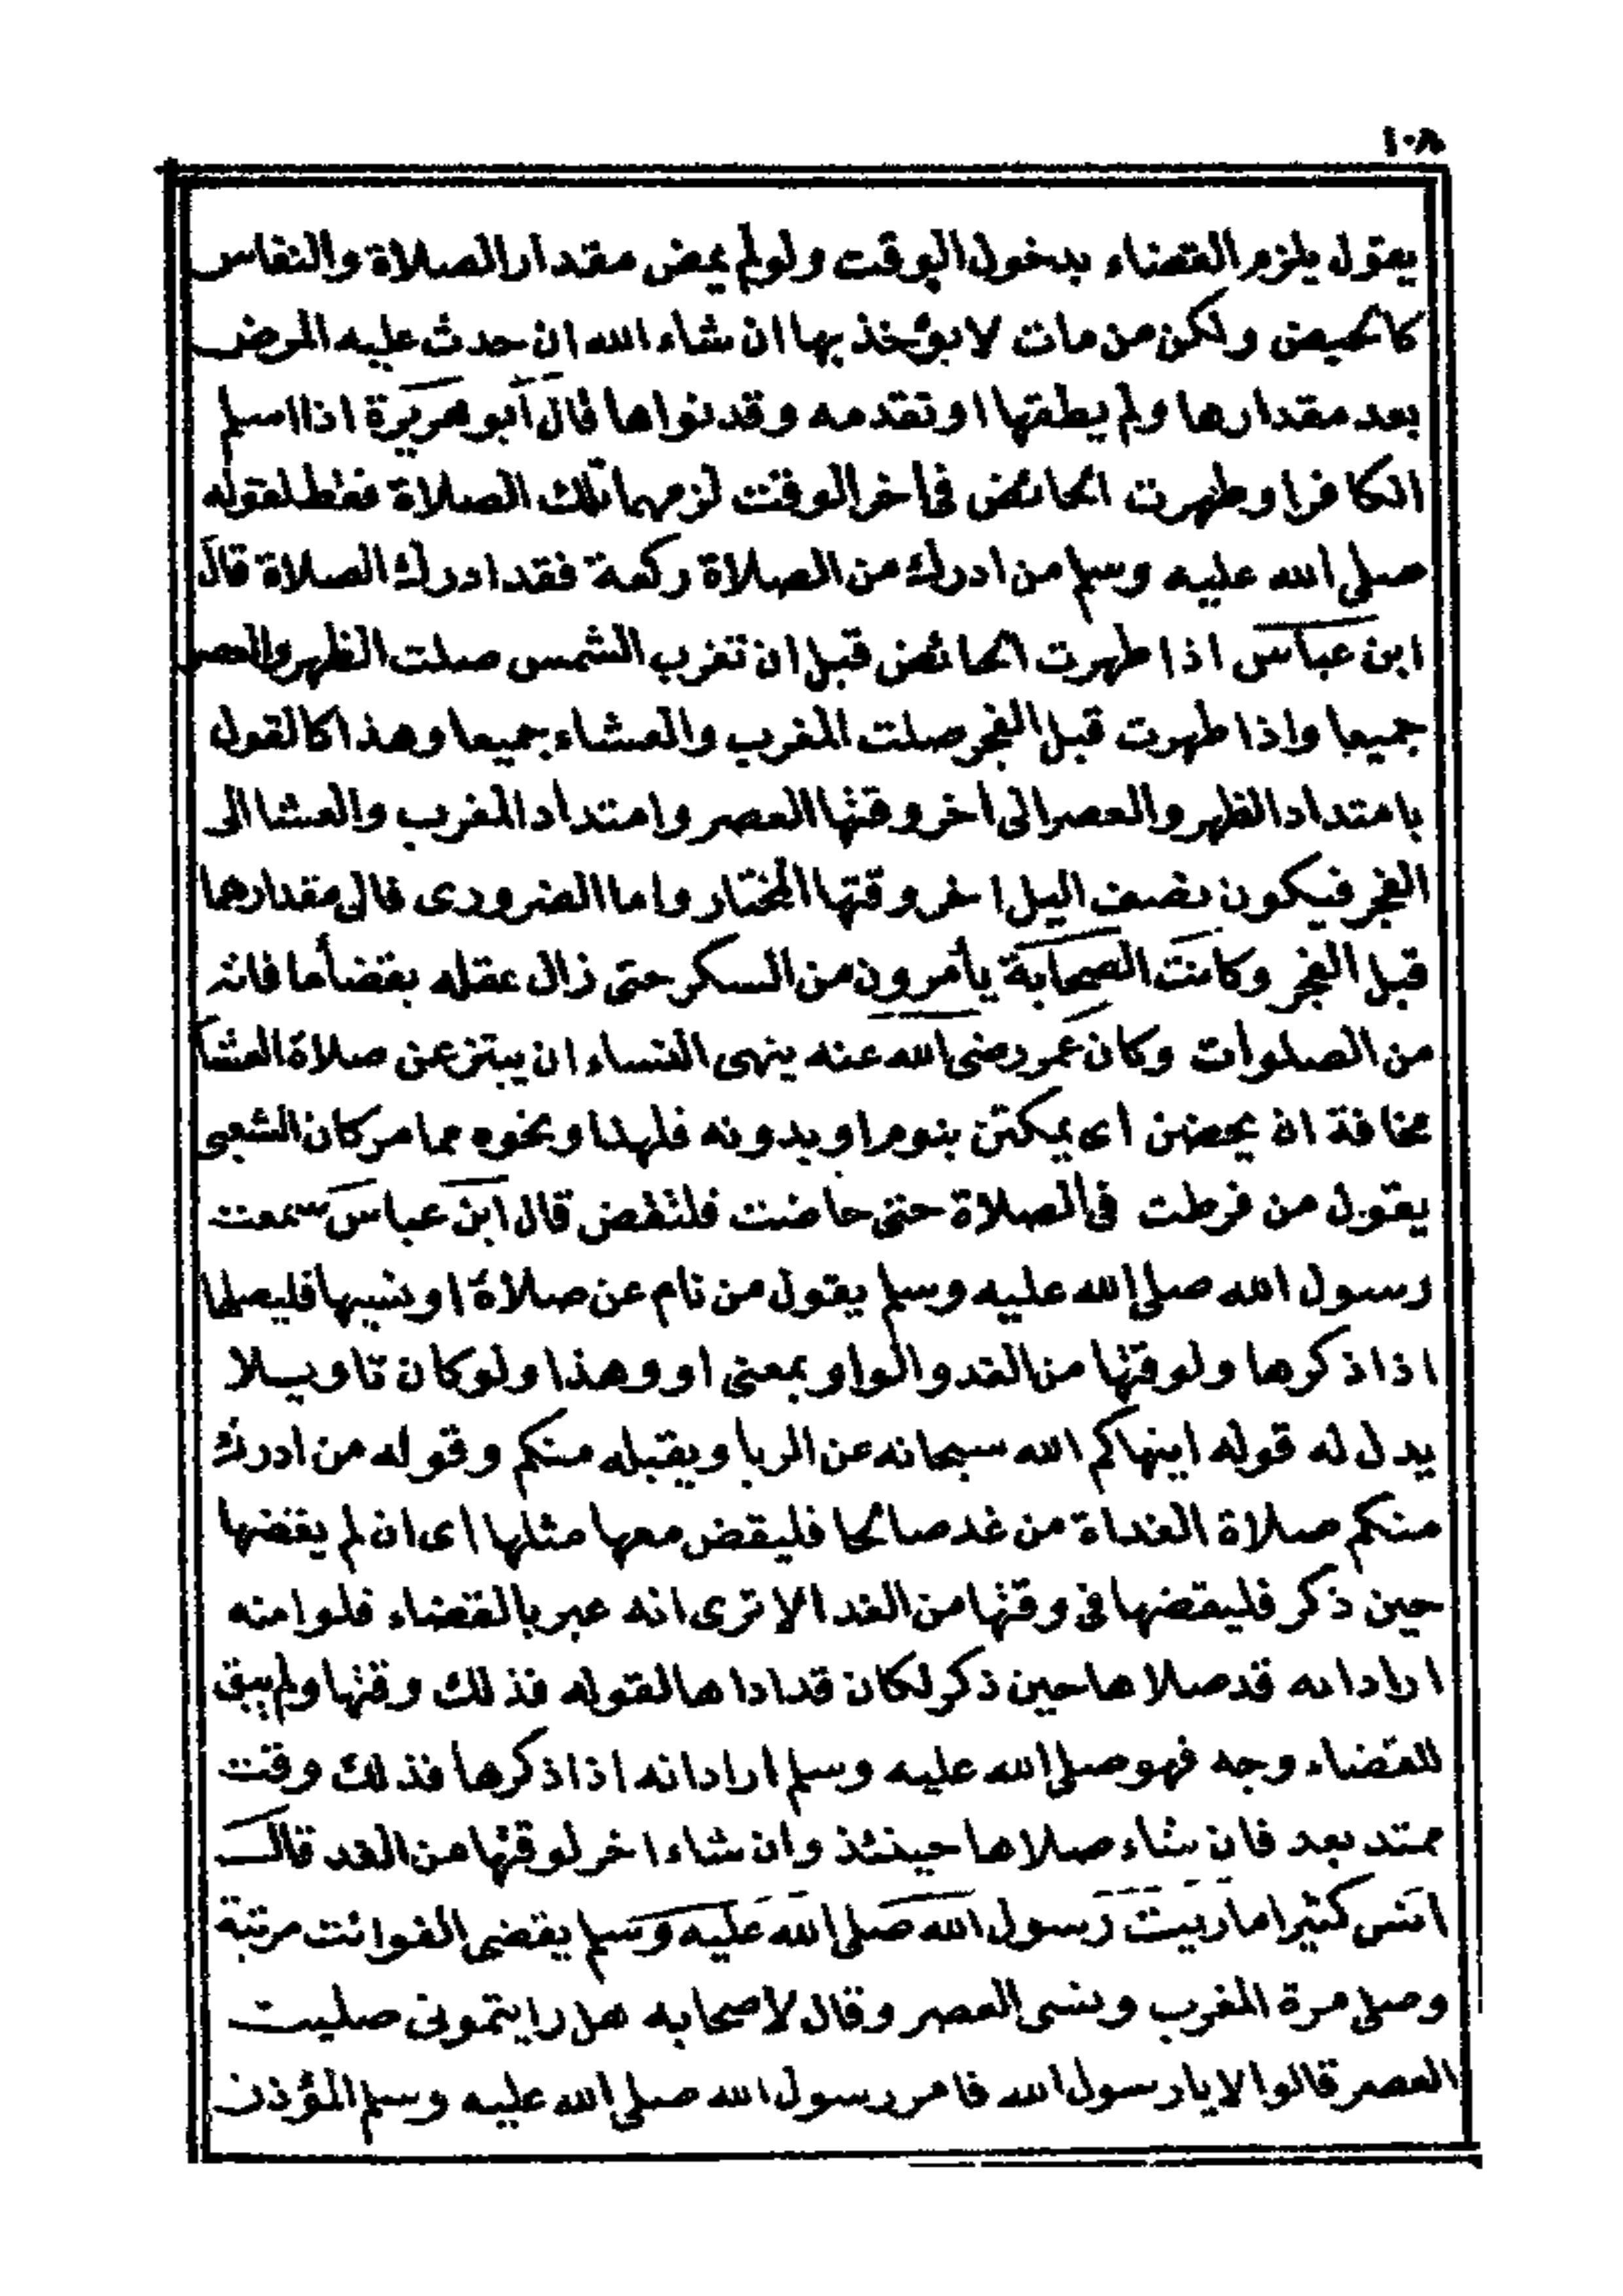 ١٠٨
يقول يلزم القضاء بدخول الوقت ولولم يمض مقدار الصلاة والنفاس
كالحيض ولكن من مات لا يؤخذ بها ان شاء الله ان حدث عليه المرض
بعد مقدارها ولم يطقها او تقدمه وقد نواها قال ابو هريرة اذا اسلم
الكافر او طهرت الحائض في أخر الوقت لزمهما تلك الصلاة فقط لقوله
صلى الله عليه وسلم من ادرك من الصلاة ركعة فقد ادرك الصلاة قال
ابن عباس اذا طهرت الحائض قبل ان تغرب الشمس صلت الظهر والعصر
جميعا واذا طهرت قبل الفجر صلت المغرب والعشاء جميعا وهذا كالقول
بامتداد الظهر والعصر الى أخر وقتها العصر وامتداد المغرب والعشا الى
الفجر فيكون نصف اليل اخر وقتها المختار واما الضرورى فالى مقدارهما
قبل الفجر وكانت الصحابة يأمرون من السكر حتى زال عقله بقضأما فاته
من الصلوات وكان عمر رضى الله عنه ينهى النساء ان يبتن عن صلاة العشا
مخافة ان يحضن اى يمكثن بنوم او بدونه فلهذا ونحوه مما مر كان الشعبى
يقول من فرطت فى الصلاة حتى حاضت فلتقض قال ابن عباس سمعت
رسول الله صلى الله عليه وسلم يقول من نام عن صلاة او نسيها فليصلها
اذا ذكرها ولوقتها من الغد والواو بمعنى او وهذا ولو كان تاويلا
يدل له قوله اينهاكم الله سبحانه عن الربا ويقبله منكم وقوله من ادرك
منكم صلاة الغداة من غد صالحا فليقض معها مثلها اى ان لم يقضها
حين ذكر فليقضها فى وقتها من الغد الا ترى انه عبر بالقضاء فلوانه
اراد انه قد صلاها حين ذكر لكان قد اداها لقوله فذلك وقتها ولم يبق
للقضاء وجه فهو صلى الله عليه وسلم اراد انه اذا ذكرها فذلك وقت
ممتد بعد فان شاء صلاها حينئذ وان شاء اخر لوقتها من الغد قال
انس كثيرا ما ريت رسول الله صلى الله عليه وسلم يقضى الفوائت مرتبة
وصلى مرة المغرب ونسى العصر وقال لاصحابه هل رايتمونى صليت
العصر قالوا لا يارسول الله فامر رسول الله صلى الله عليه وسلم المؤذن